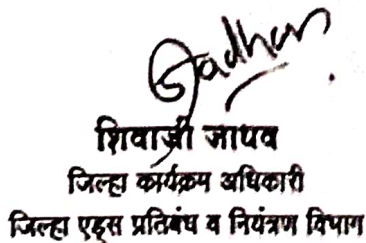 Jadhav
शिवाजी जाधव
जिल्हा कार्यक्रम अधिकारी
जिल्हा एड्स प्रतिबंध व नियंत्रण विभाग